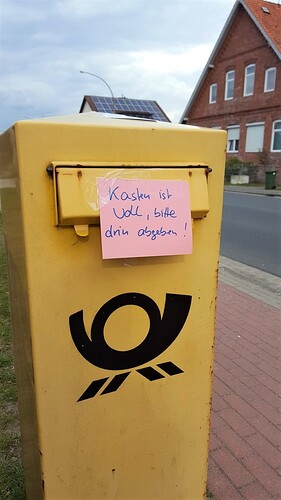 Kasten ist
voll, bitte
drin abgeben!